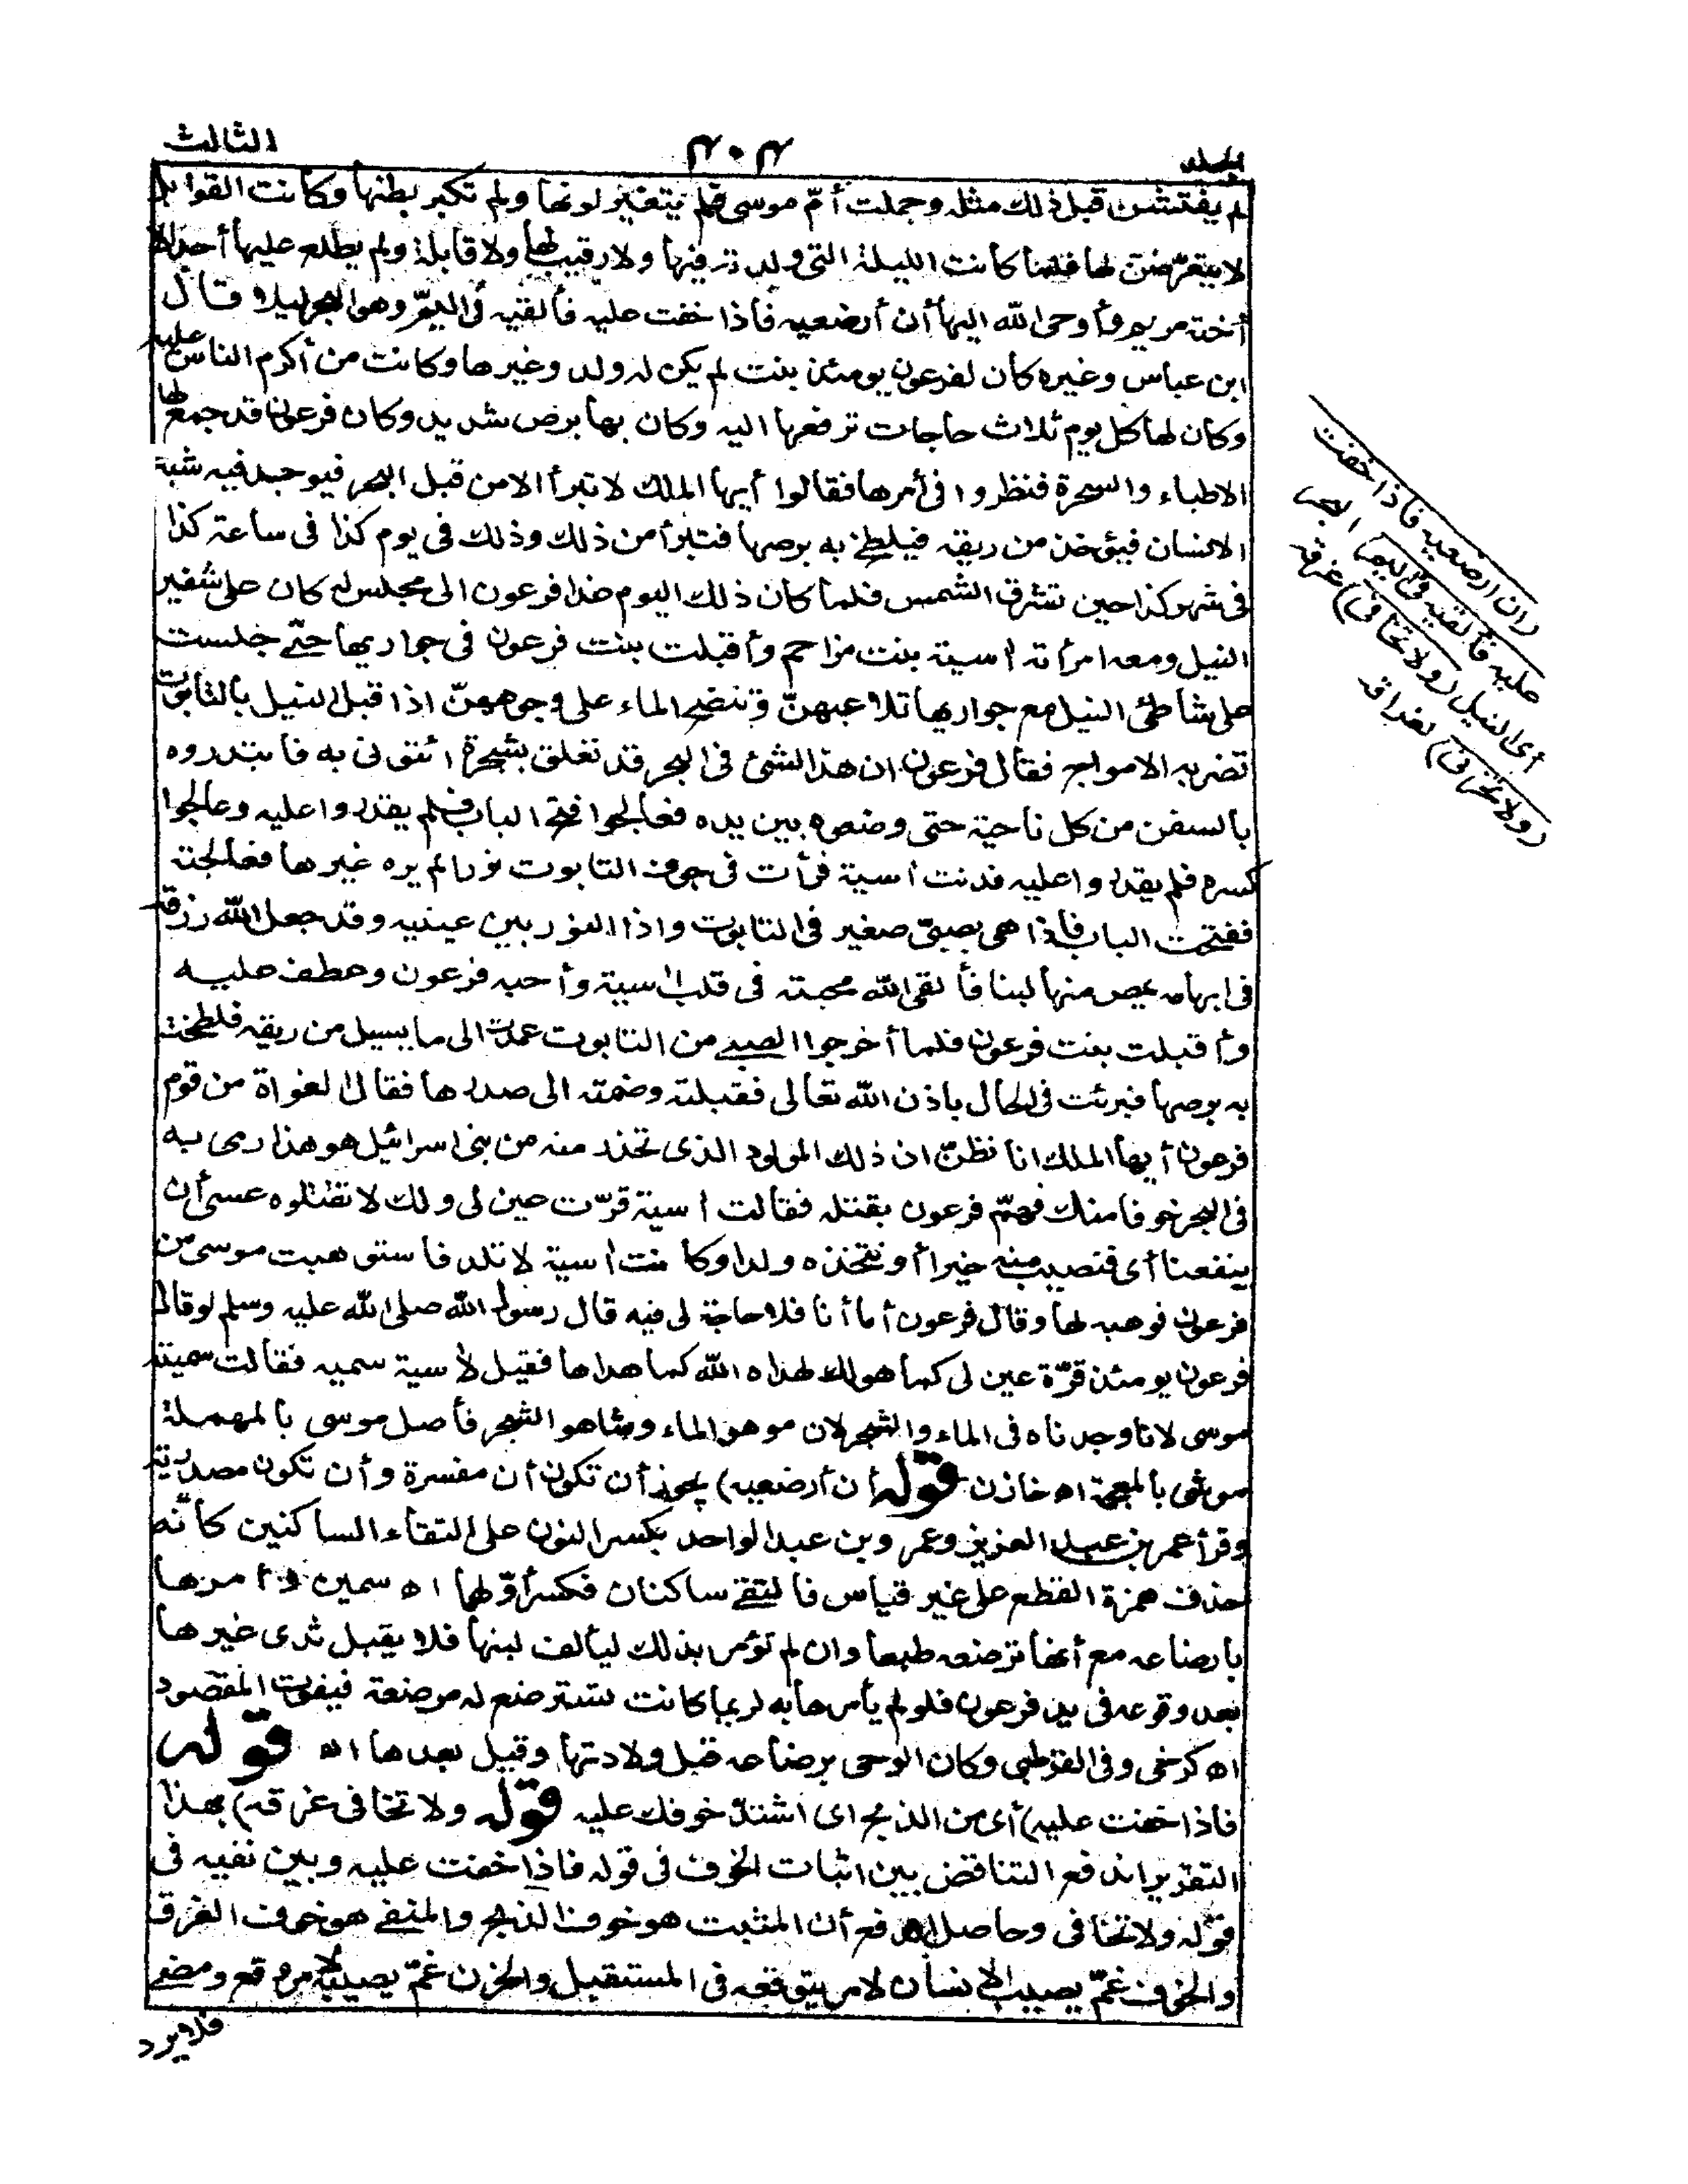 الجلد
٣٠٣
الثالث
لم يفتشن قبل ذلك مثله وحملت أمّ موسى فلم يتغير لونها ولم تكبر بطنها وكانت القوابل
لا يتعرّضن لها فلما كانت الليلة التى ولدته فيها ولا رقيب لها ولا قابلة ولم يطلع عليها أحد الا
أخته مريم وأوحى الله اليها أن أرضعيه فأذا خفت عليه فألقيه فى اليمّ وهو البحر ليلا قال
ابن عباس وغيره كان لفرعون يومئذ بنت لم يكن له ولد وغيرها وكانت من أكرم الناس عليه
وكان لها كل يوم ثلاث حاجات ترفعها اليه وكان بها برص شديد وكان فرعون قد جمع لها
الاطباء والسحرة فنظروا فى أمرها فقالوا أيها الملك لا تبرأ الا من قبل البحر فيوجد فيه شبه
الانسان فيؤخذ من ريقه فيلطخ به برصها فتبرأ من ذلك وذلك فى يوم كذا فى ساعة كذا
فى شهر كذا حين تشرق الشمس فلما كان ذلك اليوم غدا فرعون الى مجلس له كان على شفير
النيل ومعه امرأته اسية بنت مزاحم وأقبلت بنت فرعون فى جواريها حتّے جلست
على شاطئ النيل مع جواريها تلاعبهنّ وتنضح الماء على وجوههنّ اذا قبل النيل بالتابوت
تضربه الامواج فقال فرعون ان هذا لشئ فى البحر قد تعلق بشجرة ائتونى به فابتدروه
بالسفن من كل ناحية حتى وضعوه بين يده فعالجوا فتح الباب فلم يقدروا عليه وعالجوا
كسره فلم يقدروا عليه فدنت اسية فرأت فى جوف التابوت نورا لم يره غيرها فعالجته
ففتحت الباب فأذا هى بصبىّ صغير فى التابوت واذا النور بين عينيه وقد جعل الله رزقه
فى ابهامه يمص منها لبنا فألقى الله محبته فى قلب اسية وأحبه فرعون وعطف عليه
وأقبلت بنت فرعون فلما أخرجوا الصبے من التابوت عمدت الى ما يسيل من ريقه فلطخت
به برصها فبرئت فى الحال باذن الله تعالى فقبلته وضمته الى صدرها فقال الغواة من قوم
فرعون أيها الملك انا نظنّ ان ذلك المولود الذى تحذر منه من بنى اسرائيل هو هذا رمى به
فى البحر خوفا منك فهمّ فرعون بقتله فقالت اسية قرّت عين لى ولك لا تقتلوه عسى أن
ينفعنا أى فنصيب منه خيرا أو نتخذه ولدا وكانت اسية لا تلد فاستوهبت موسى من
فرعون فوهبه لها وقال فرعون أما أنا فلا حاجة لى فيه قال رسول الله صلى الله عليه وسلم لو قال
فرعون يومئذ قرّة عين لى كما هو لك لهداه الله كما هداها فقيل لأسية سميه فقالت سميته
موسى لانا وجدناه فى الماء والشجر لان مو هو الماء وشا هو الشجر فأصل موسى بالمهملة
موشى بالمعجمة اه خازن قوله أن أرضعيه) يجوز أن تكون أن مفسرة وأن تكون مصدرية
وقرأ عمر بن عبد العزيز وعمرو بن عبد الواحد بكسر النون على التقاء الساكنين كأنّه
حذف همزة القطع على غير قياس فالتقے ساكنان فكسر أوّلهما اه سمين وأمرها
بارضاعه مع أنها ترضعه طبعا وان لم تؤمر بذلك ليألف لبنها فلا يقبل ثدى غيرها
بعد وقوعه فى يد فرعون فلو لم يأمرها به لربما كانت تسترضع له مرضعة فيفوت المقصود
اه كرخى وفى القرطبى وكان الوحى برضاعه قبل ولادتها وقيل بعدها اه قوله
فاذا خفت عليه) أى من الذبح اى اشتدّ خوفك عليه قوله ولا تخافى غرقه) بهذا
التقرير اندفع التناقض بين اثبات الخوف فى قوله فاذا خفت عليه وبين نفيه فى
قوله ولا تخافى وحاصل الدفع أن المثبت هو خوف الذبح والمنفے هو خوف الغرق
والخوف غمّ يصيب الانسان لامر يتوقعه فى المستقبل والحزن غمّ يصيبه لامر وقع ومضے
فلا يرد
(ان ارضعيه فأذا خفت
عليه فألقيه فى اليم) البحر
أى النيل (ولا تخافى) غرقه
(ولا تحزنى) لفراقه